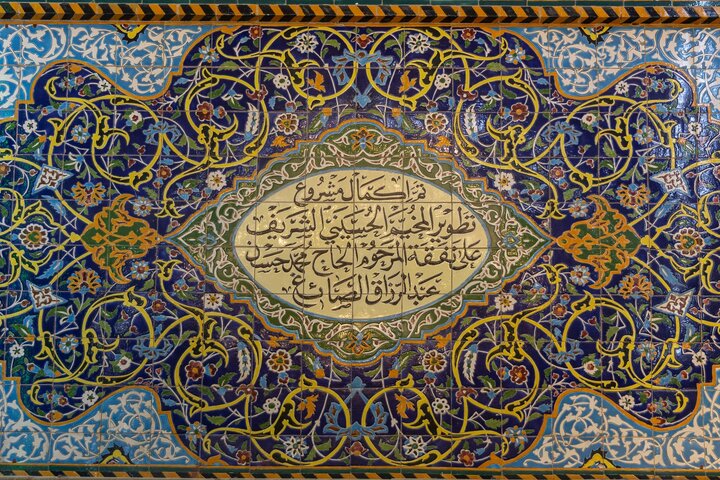 تم اكمال مشروع
تطوير المخيم الحسيني الشريف
على نفقة المرحوم الحاج محمد حسين
عبد الرزاق الصائغ